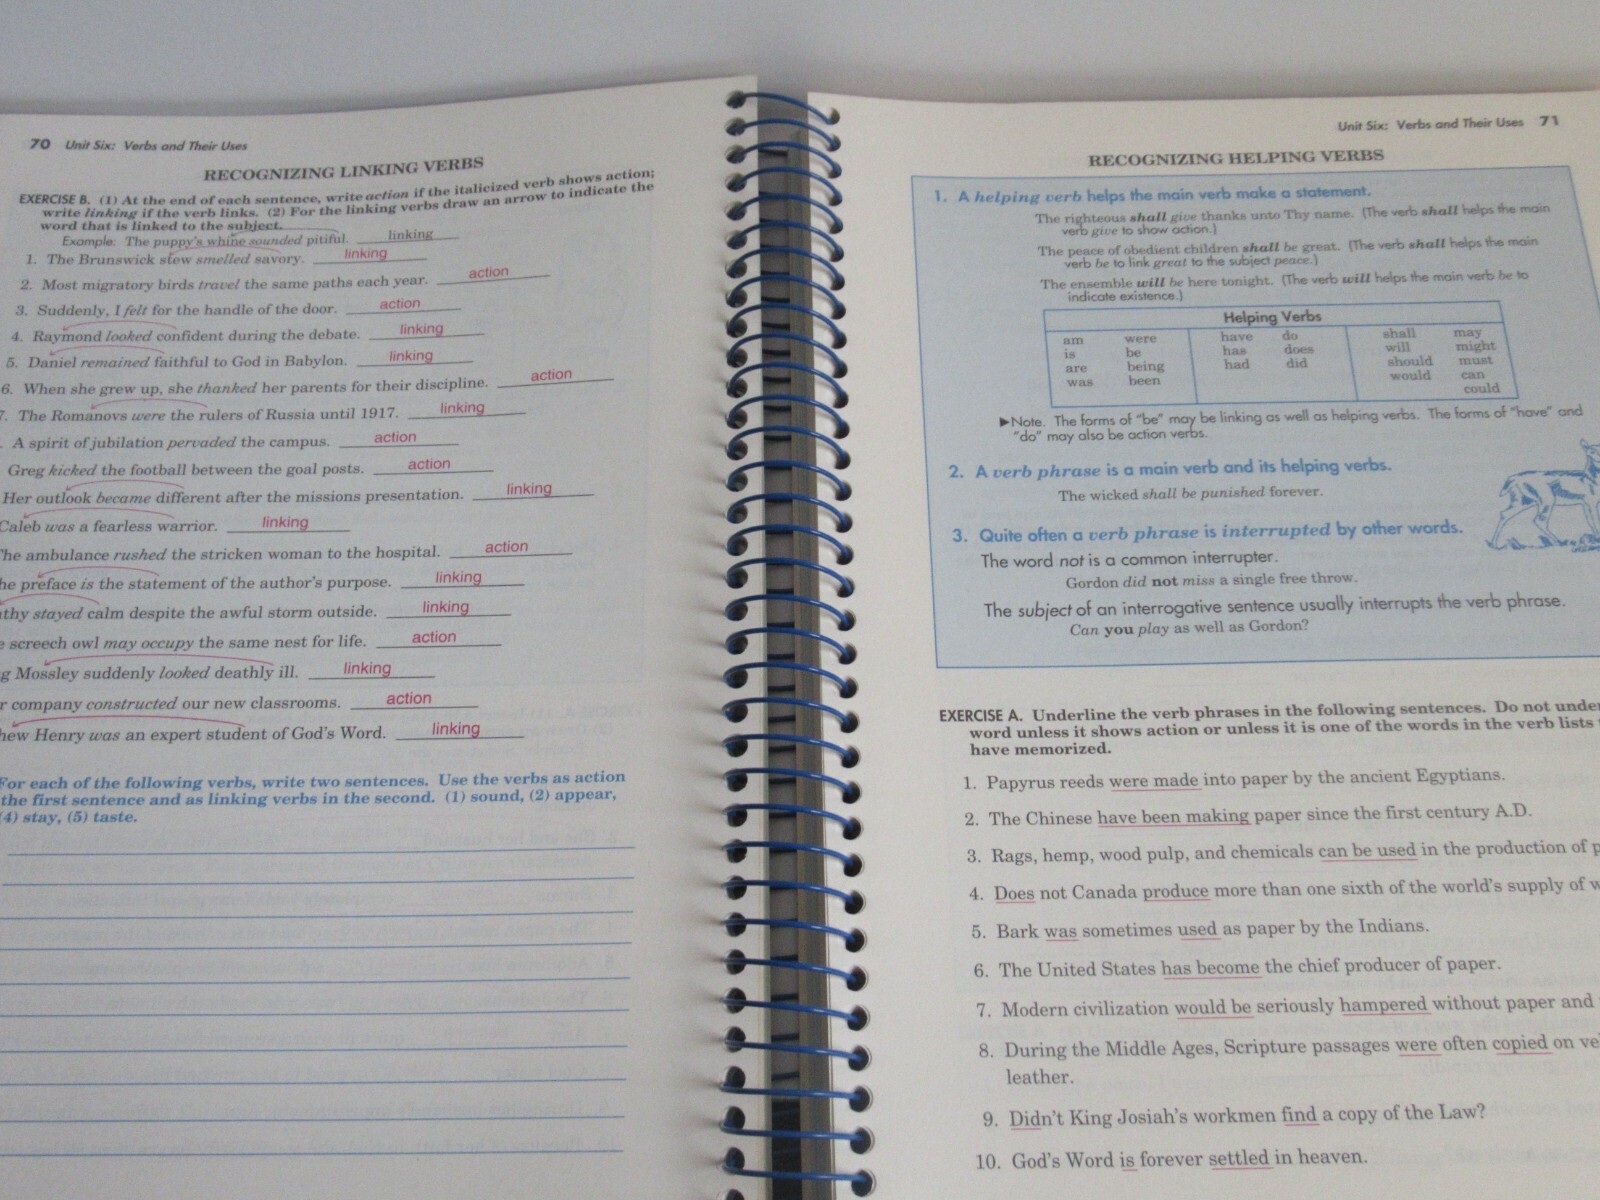 70 Unit Six: Verbs and Their Uses
RECOGNIZING LINKING VERBS
EXERCISE B. (1) At the end of each sentence, write action if the italicized verb shows action;
write linking if the verb links. (2) For the linking verbs draw an arrow to indicate the
word that is linked to the subject.
Example: The puppy's whine sounded pitiful. linking
1. The Brunswick stew smelled savory. linking
2. Most migratory birds travel the same paths each year. action
3. Suddenly, I felt for the handle of the door. action
4. Raymond looked confident during the debate. linking
5. Daniel remained faithful to God in Babylon. linking
6. When she grew up, she thanked her parents for their discipline. action
7. The Romanovs were the rulers of Russia until 1917. linking
. A spirit of jubilation pervaded the campus. action
Greg kicked the football between the goal posts. action
Her outlook became different after the missions presentation. linking
Caleb was a fearless warrior. linking
The ambulance rushed the stricken woman to the hospital. action
he preface is the statement of the author's purpose. linking
thy stayed calm despite the awful storm outside. linking
e screech owl may occupy the same nest for life. action
g Mossley suddenly looked deathly ill. linking
r company constructed our new classrooms. action
hew Henry was an expert student of God's Word. linking
For each of the following verbs, write two sentences. Use the verbs as action
the first sentence and as linking verbs in the second. (1) sound, (2) appear,
(4) stay, (5) taste.
Unit Six: Verbs and Their Uses 71
RECOGNIZING HELPING VERBS
1. A helping verb helps the main verb make a statement.
The righteous shall give thanks unto Thy name. (The verb shall helps the main
verb give to show action.)
The peace of obedient children shall be great. (The verb shall helps the main
verb be to link great to the subject peace.)
The ensemble will be here tonight. (The verb will helps the main verb be to
indicate existence.)
Helping Verbs
am were have do shall may
is be has does will might
are being had did should must
was been would can
could
▶Note. The forms of "be" may be linking as well as helping verbs. The forms of "have" and
"do" may also be action verbs.
2. A verb phrase is a main verb and its helping verbs.
The wicked shall be punished forever.
3. Quite often a verb phrase is interrupted by other words.
The word not is a common interrupter.
Gordon did not miss a single free throw.
The subject of an interrogative sentence usually interrupts the verb phrase.
Can you play as well as Gordon?
EXERCISE A. Underline the verb phrases in the following sentences. Do not unde
word unless it shows action or unless it is one of the words in the verb lists
have memorized.
1. Papyrus reeds were made into paper by the ancient Egyptians.
2. The Chinese have been making paper since the first century A.D.
3. Rags, hemp, wood pulp, and chemicals can be used in the production of p
4. Does not Canada produce more than one sixth of the world's supply of w
5. Bark was sometimes used as paper by the Indians.
6. The United States has become the chief producer of paper.
7. Modern civilization would be seriously hampered without paper and
8. During the Middle Ages, Scripture passages were often copied on ve
leather.
9. Didn't King Josiah's workmen find a copy of the Law?
10. God's Word is forever settled in heaven.